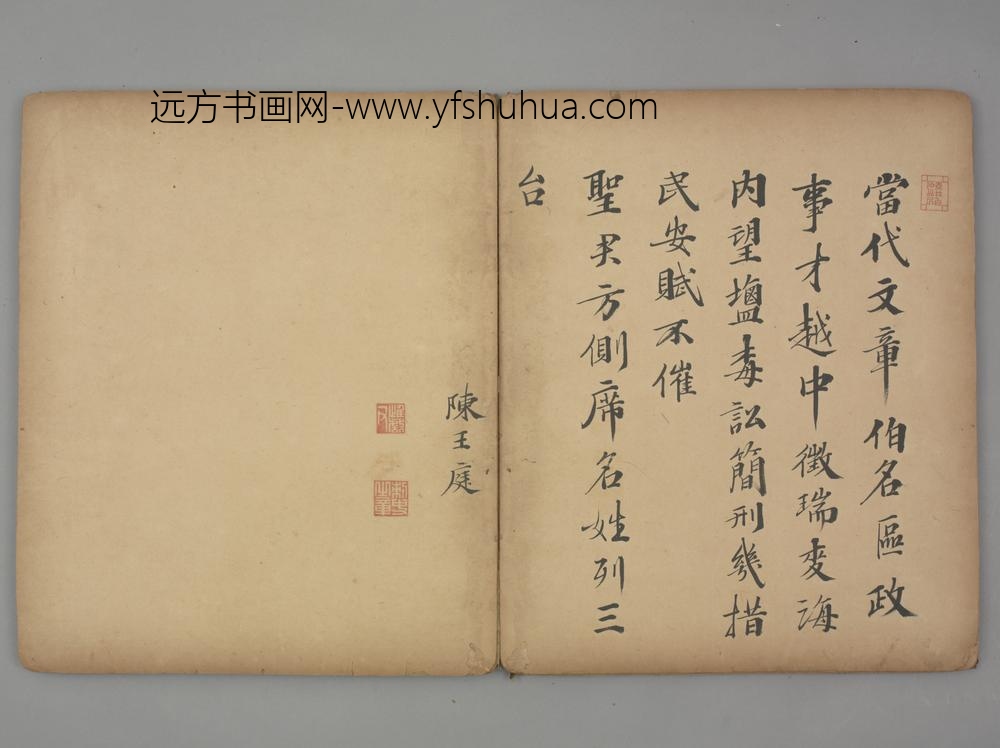 远方书画网-www.yfshuhua.com
當代文章伯名區政
事才越中徵瑞麦海
内望塩梅訟簡刑幾措
民安賦不催
聖君方側席名姓列三
台
陳王庭